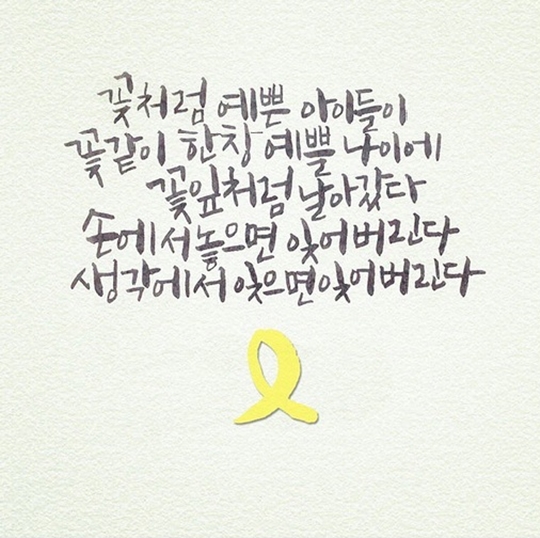 꽃처럼 예쁜 아이들이
꽃같이 한창 예쁠 나이에
꽃잎처럼 날아갔다
손에서 놓으면 잊어버린다
생각에서 잊으면 잊어버린다